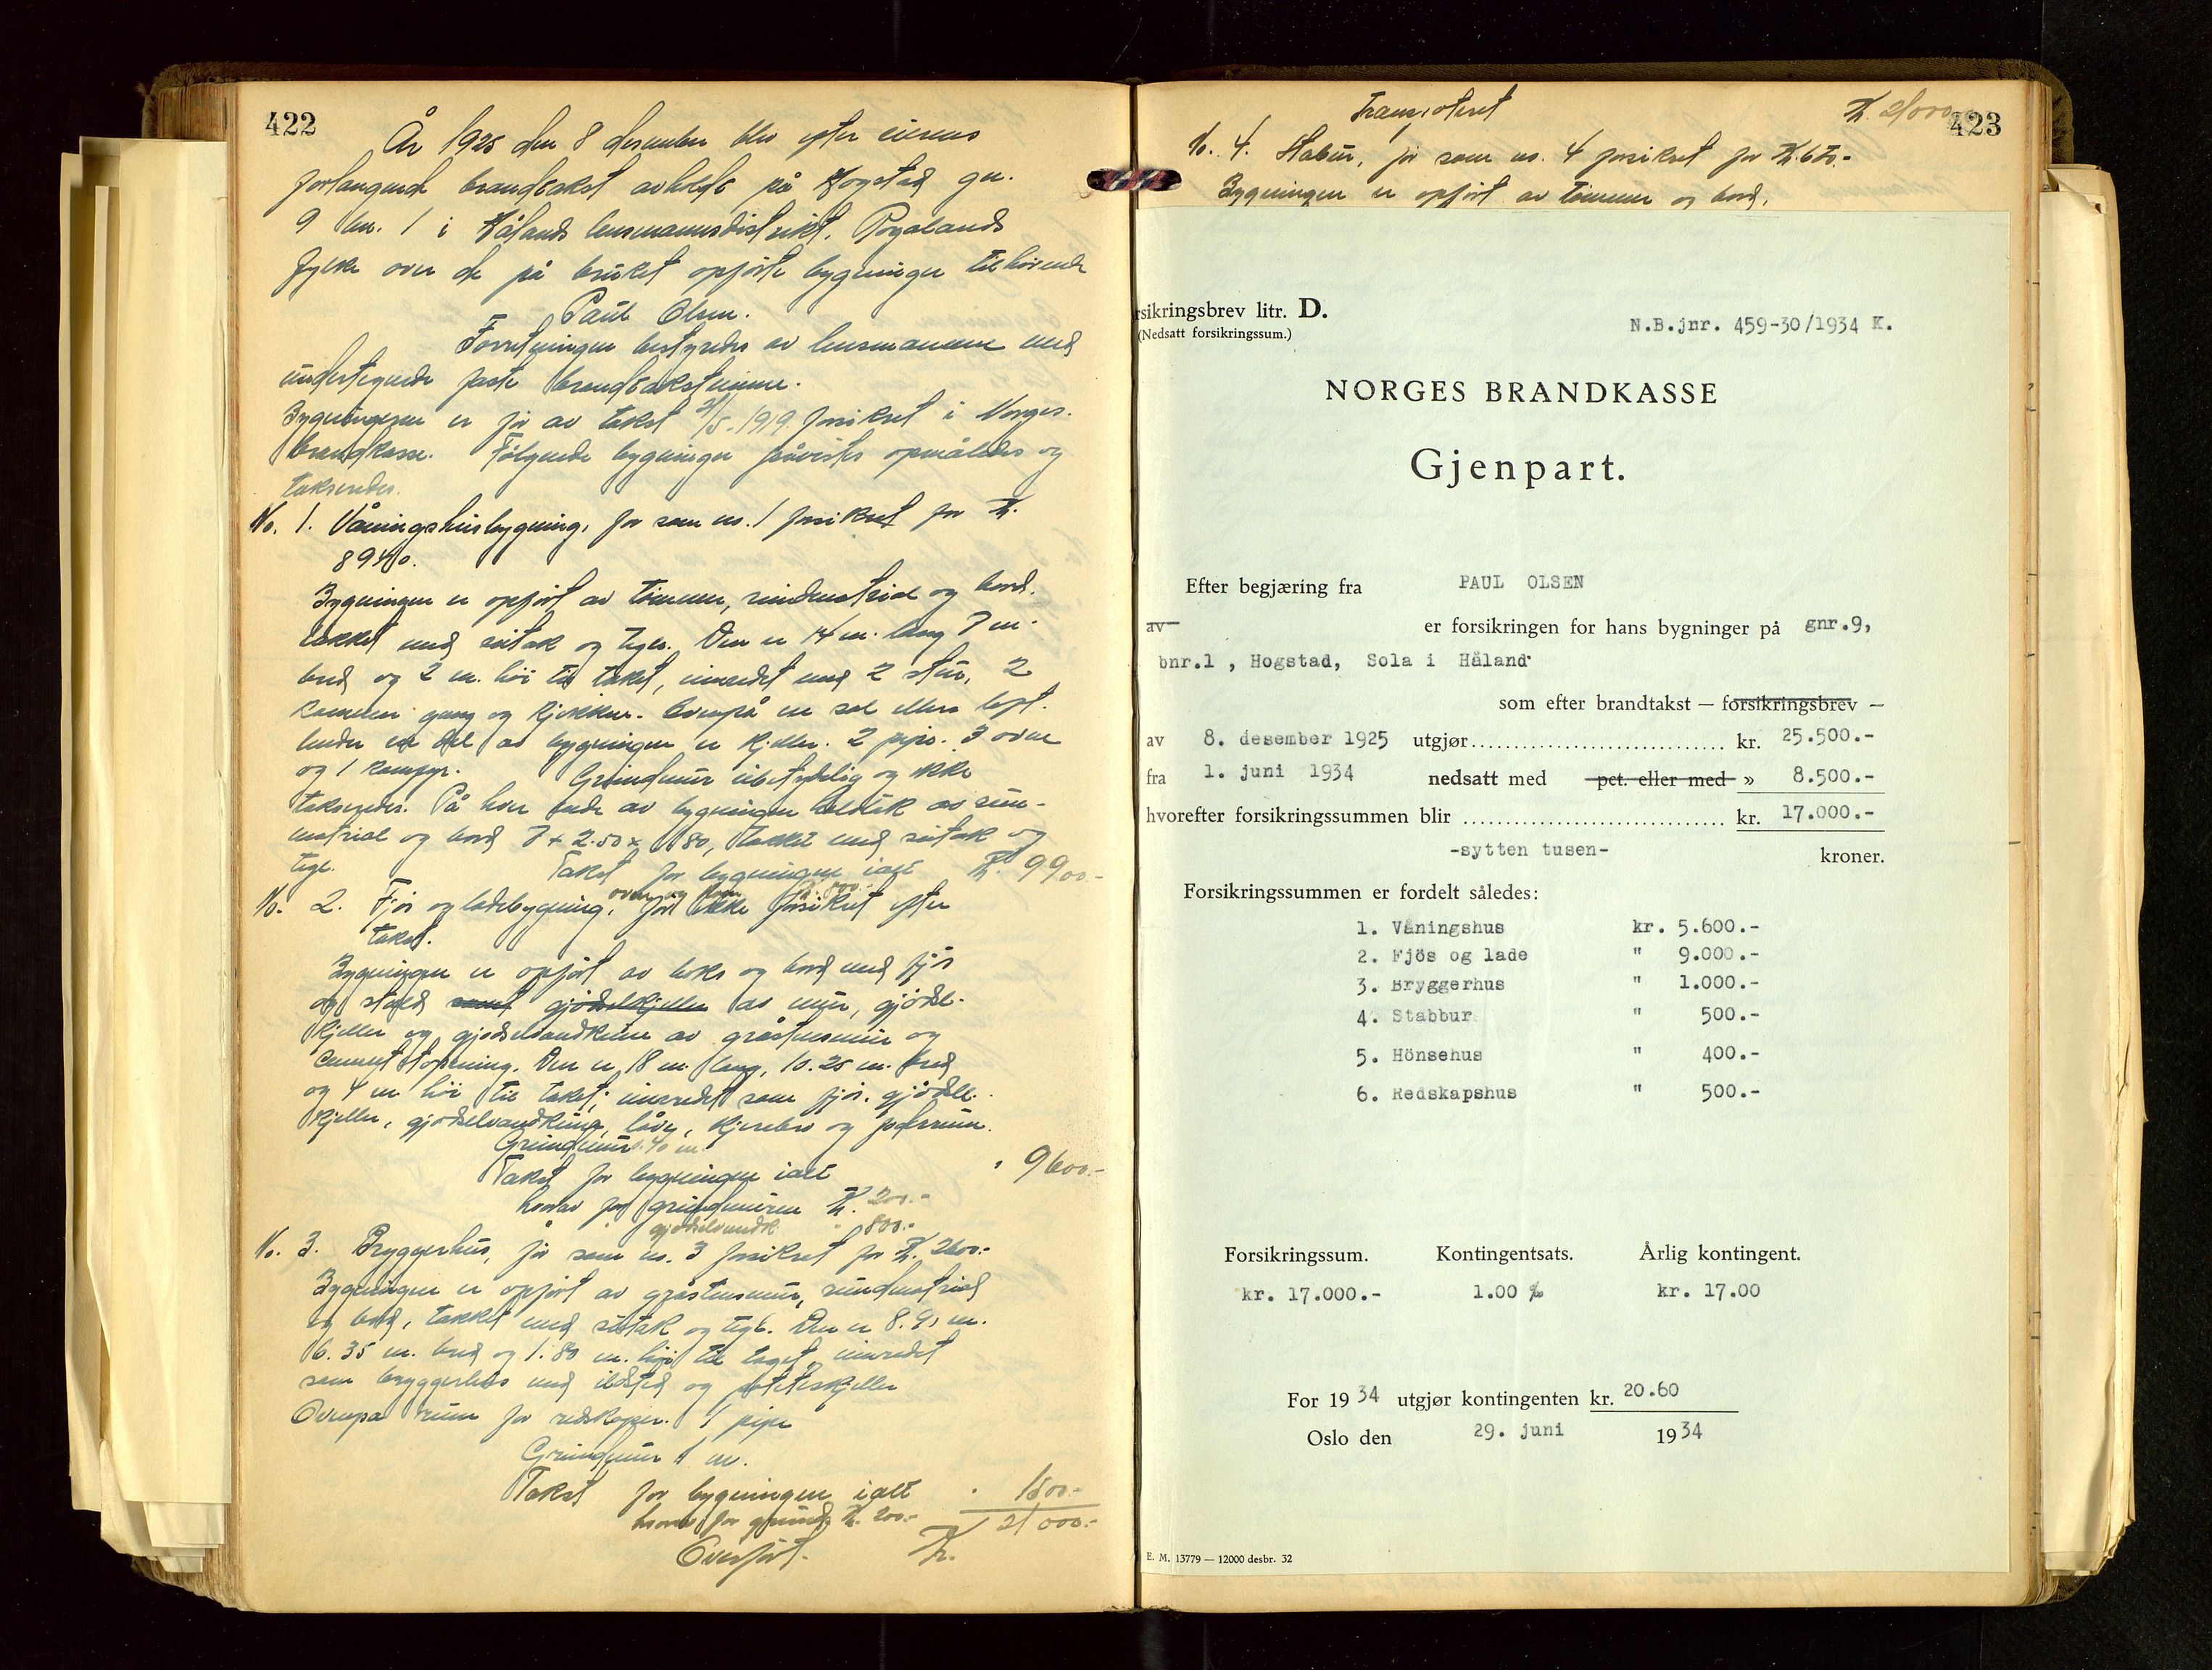 422
År 1925 den 8 desember blev efter eierens
forlangende brandtakst avholdt på Hogstad gn.
9 bn. 1 i Hålands lensmannsdistrikt, Rogalands
fylke over de på bruket opførte bygninger tilhørende
Paul Olsen.
Forretningen bestyredes av lensmannen med
undertegnede faste brandtakstmenn.
Bygningene er før av takst /5. 1919 forsikret i Norges
brandkasse. Følgende bygninger påvistes opmåltes og
takseredes.
No. 1. Våningshusbygning, før som no. 1 forsikret for Kr.
8940.
Bygningen er opført av tømmer, bindmatrial og bord.
takket med sutak og tegl. Den er 14 m. lang 7 m.
bred og 2 m. høi til taket, innredet med 2 stuer, 2
kammer gang og kjøkken. Ovenpå en sal ellers loft.
Under en del av bygningen er kjeller. 2 piper. 3 ovne
og 1 komfyr. Grundmur ubetydelig og ikke
takseredes. På hver ende av bygningen
matrial og bord 7 x 2.50 x 1.80, takket med sutak og
tegl. Takst for bygningen ialt Kr. 9900.-
No. 2. Fjøs og ladebygning, før ikke forsikret efter
takst.
Bygningen er opført av boks og bord med fjøs
og stald samt gjødselkjeller av mur, gjødsel-
kjeller og gjødselvandkum av gråstensmur og
cementstøpning. Den er 18 m. lang, 10.25 m. bred
og 4 m. høi til taket; innredet som fjøs, gjødsel-
kjeller, gjødselvandkum, låve, kjørebro og forrum.
Grundmur 0.40 m
Takst for bygningen ialt " 9600.-
herav for grundmuren Kr. 200.-
gjødselvandk. " 800.-
No. 3. Bryggerhus, før som no. 3 forsikret for Kr. 2600.-
Bygningen er opført av gråstensmur, bindmatrial
og bord, takket med sutak og tegl. Den er 8.91 m.
6.35 m. bred og 1.80 m. høi til taget, innredet
som bryggerhus med ildsted og poteteskjeller
Ovenpå rum for redskaper. 1 pipe
Grundmur 1 m.
Takst for bygningen ialt " 1500.-
herav for grundm. Kr. 200.-
Overført. Kr. 21000.-
Transporteret Kr. 21000
423
No. 4. Stabur, før som no. 4 forsikret for Kr. 670.-
Bygningen er opført av tømmer og bord,
rsikringsbrev litr. D.
(Nedsatt forsikringssum.)
N.B.jnr. 459-30/1934 K.
NORGES BRANDKASSE
Gjenpart.
Efter begjæring fra PAUL OLSEN
av er forsikringen for hans bygninger på gnr.9,
bnr.1 , Hogstad, Sola i Håland
som efter brandtakst — forsikringsbrev —
av 8. desember 1925 utgjør.............................. kr. 25.500.-
fra 1. juni 1934 nedsatt med pct. eller med » 8.500.-
hvorefter forsikringssummen blir .............................. kr. 17.000.-
-sytten tusen- kroner.
Forsikringssummen er fordelt således:
1. Våningshus kr. 5.600.-
2. Fjös og lade " 9.000.-
3. Bryggerhus " 1.000.-
4. Stabbur " 500.-
5. Hönsehus " 400.-
6. Redskapshus " 500.-
Forsikringssum. Kontingentsats. Årlig kontingent.
kr. 17.000.- 1.00 ‰ kr. 17.00
For 1934 utgjør kontingenten kr. 20.60
Oslo den 29. juni 1934
E. M. 13779 — 12000 desbr. 32